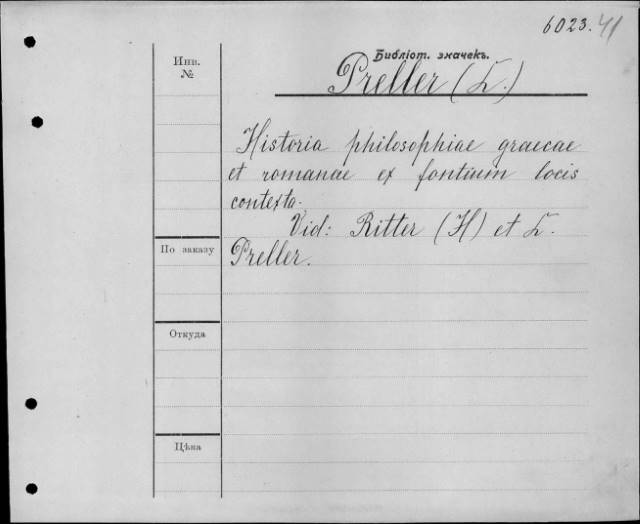 6023.41
Инв.
№
Библіот. значекъ.
Preller (L.)
Historia philosophiae graecae
et romanae ex fontium locis
contexta.
Vid: Ritter (H) et L.
Preller.
По заказу
Откуда
Цѣна